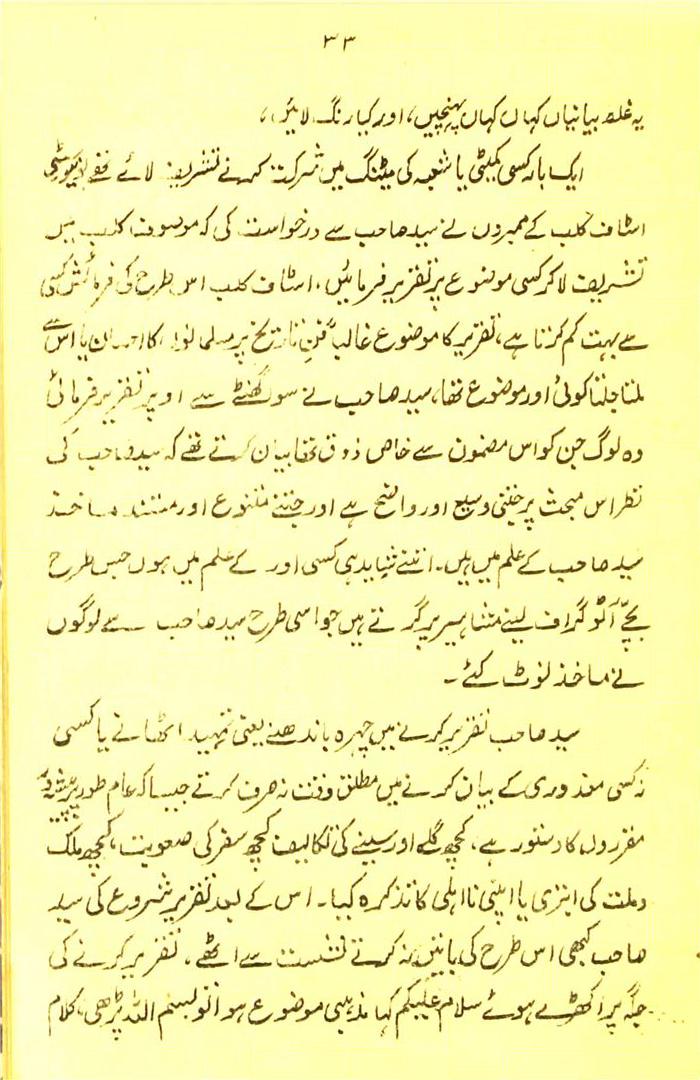 ۳۳
یہ غلط بیانیاں کہاں کہاں پہنچیں، اور کیا رنگ لائیں،
ایک بار کسی کمیٹی یا شعبہ کی میٹنگ میں شرکت کرنے تشریف لائے تھے یونیورسٹی
اسٹاف کلب کے ممبروں نے سید صاحب سے درخواست کی کہ موصوف کلب میں
تشریف لا کر کسی موضوع پر تقریر فرمائیں، اسٹاف کلب اس طرح کی فرمائش کسی
سے بہت کم کرتا ہے، تقریر کا موضوع غالباً فن تاریخ پر مسلمانوں کا احسان یا اس سے
ملتا جلتا کوئی اور موضوع تھا، سید صاحب نے سو گھنٹے سے اوپر تقریر فرمائی
وہ لوگ جن کو اس مضمون سے خاص ذوق تھا بیان کرتے تھے کہ سید صاحب کی
نظر اس مبحث پر جتنی وسیع اور واضح ہے اور جتنے متنوع اور مستند ماخذ
سید صاحب کے علم میں ہیں۔ اتنے شاید ہی کسی اور کے علم میں ہوں جس طرح
بچے آٹو گراف لینے مشاہیر پر گرتے ہیں جو اسی طرح سید صاحب سے لوگوں
نے ماخذ نوٹ کئے۔
سید صاحب تقریر کرنے میں چہرہ باندھنے یعنی تمہید اٹھانے یا کسی
نہ کسی معذوری کے بیان کرنے میں مطلق وقت نہ صرف کرتے جیسا کہ عام طور پر پیشہ ور
مقرروں کا دستور ہے، کچھ گلے اور سینے کی تکالیف کچھ سفر کی صعوبت، کچھ ملک
و ملت کی ابتری یا اپنی نا اہلی کا تذکرہ کیا۔ اس کے بعد تقریر شروع کی سید
صاحب کبھی اس طرح کی باتیں نہ کرتے نشست سے اٹھے، تقریر کرنے کی
جگہ پر آ کھڑے ہوئے سلام علیکم کہا مذہبی موضوع ہوا تو بسم اللہ پڑھی، کلام